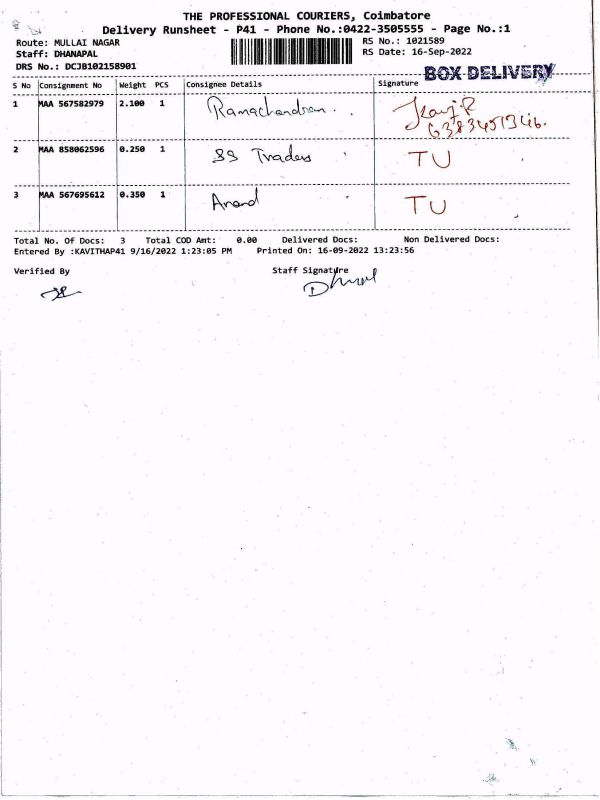 THE PROFESSIONAL COURIERS, Coimbatore
Delivery Runsheet - P41 - Phone No.:0422-3505555 - Page No.:1
Route: MULLAI NAGAR RS No.: 1021589
Staff: DHANAPAL RS Date: 16-Sep-2022
DRS No.: DCJB102158901
BOX DELIVERY
S No Consignment No Weight PCS Consignee Details Signature
1 MAA 567582979 2.100 1 Ramachandran
2 MAA 858062596 0.250 1 SS Traders TU
3 MAA 567695612 0.350 1 Anand TU
Total No. Of Docs: 3 Total COD Amt: 0.00 Delivered Docs: Non Delivered Docs:
Entered By :KAVITHAP41 9/16/2022 1:23:05 PM Printed On: 16-09-2022 13:23:56
Verified By Staff Signature